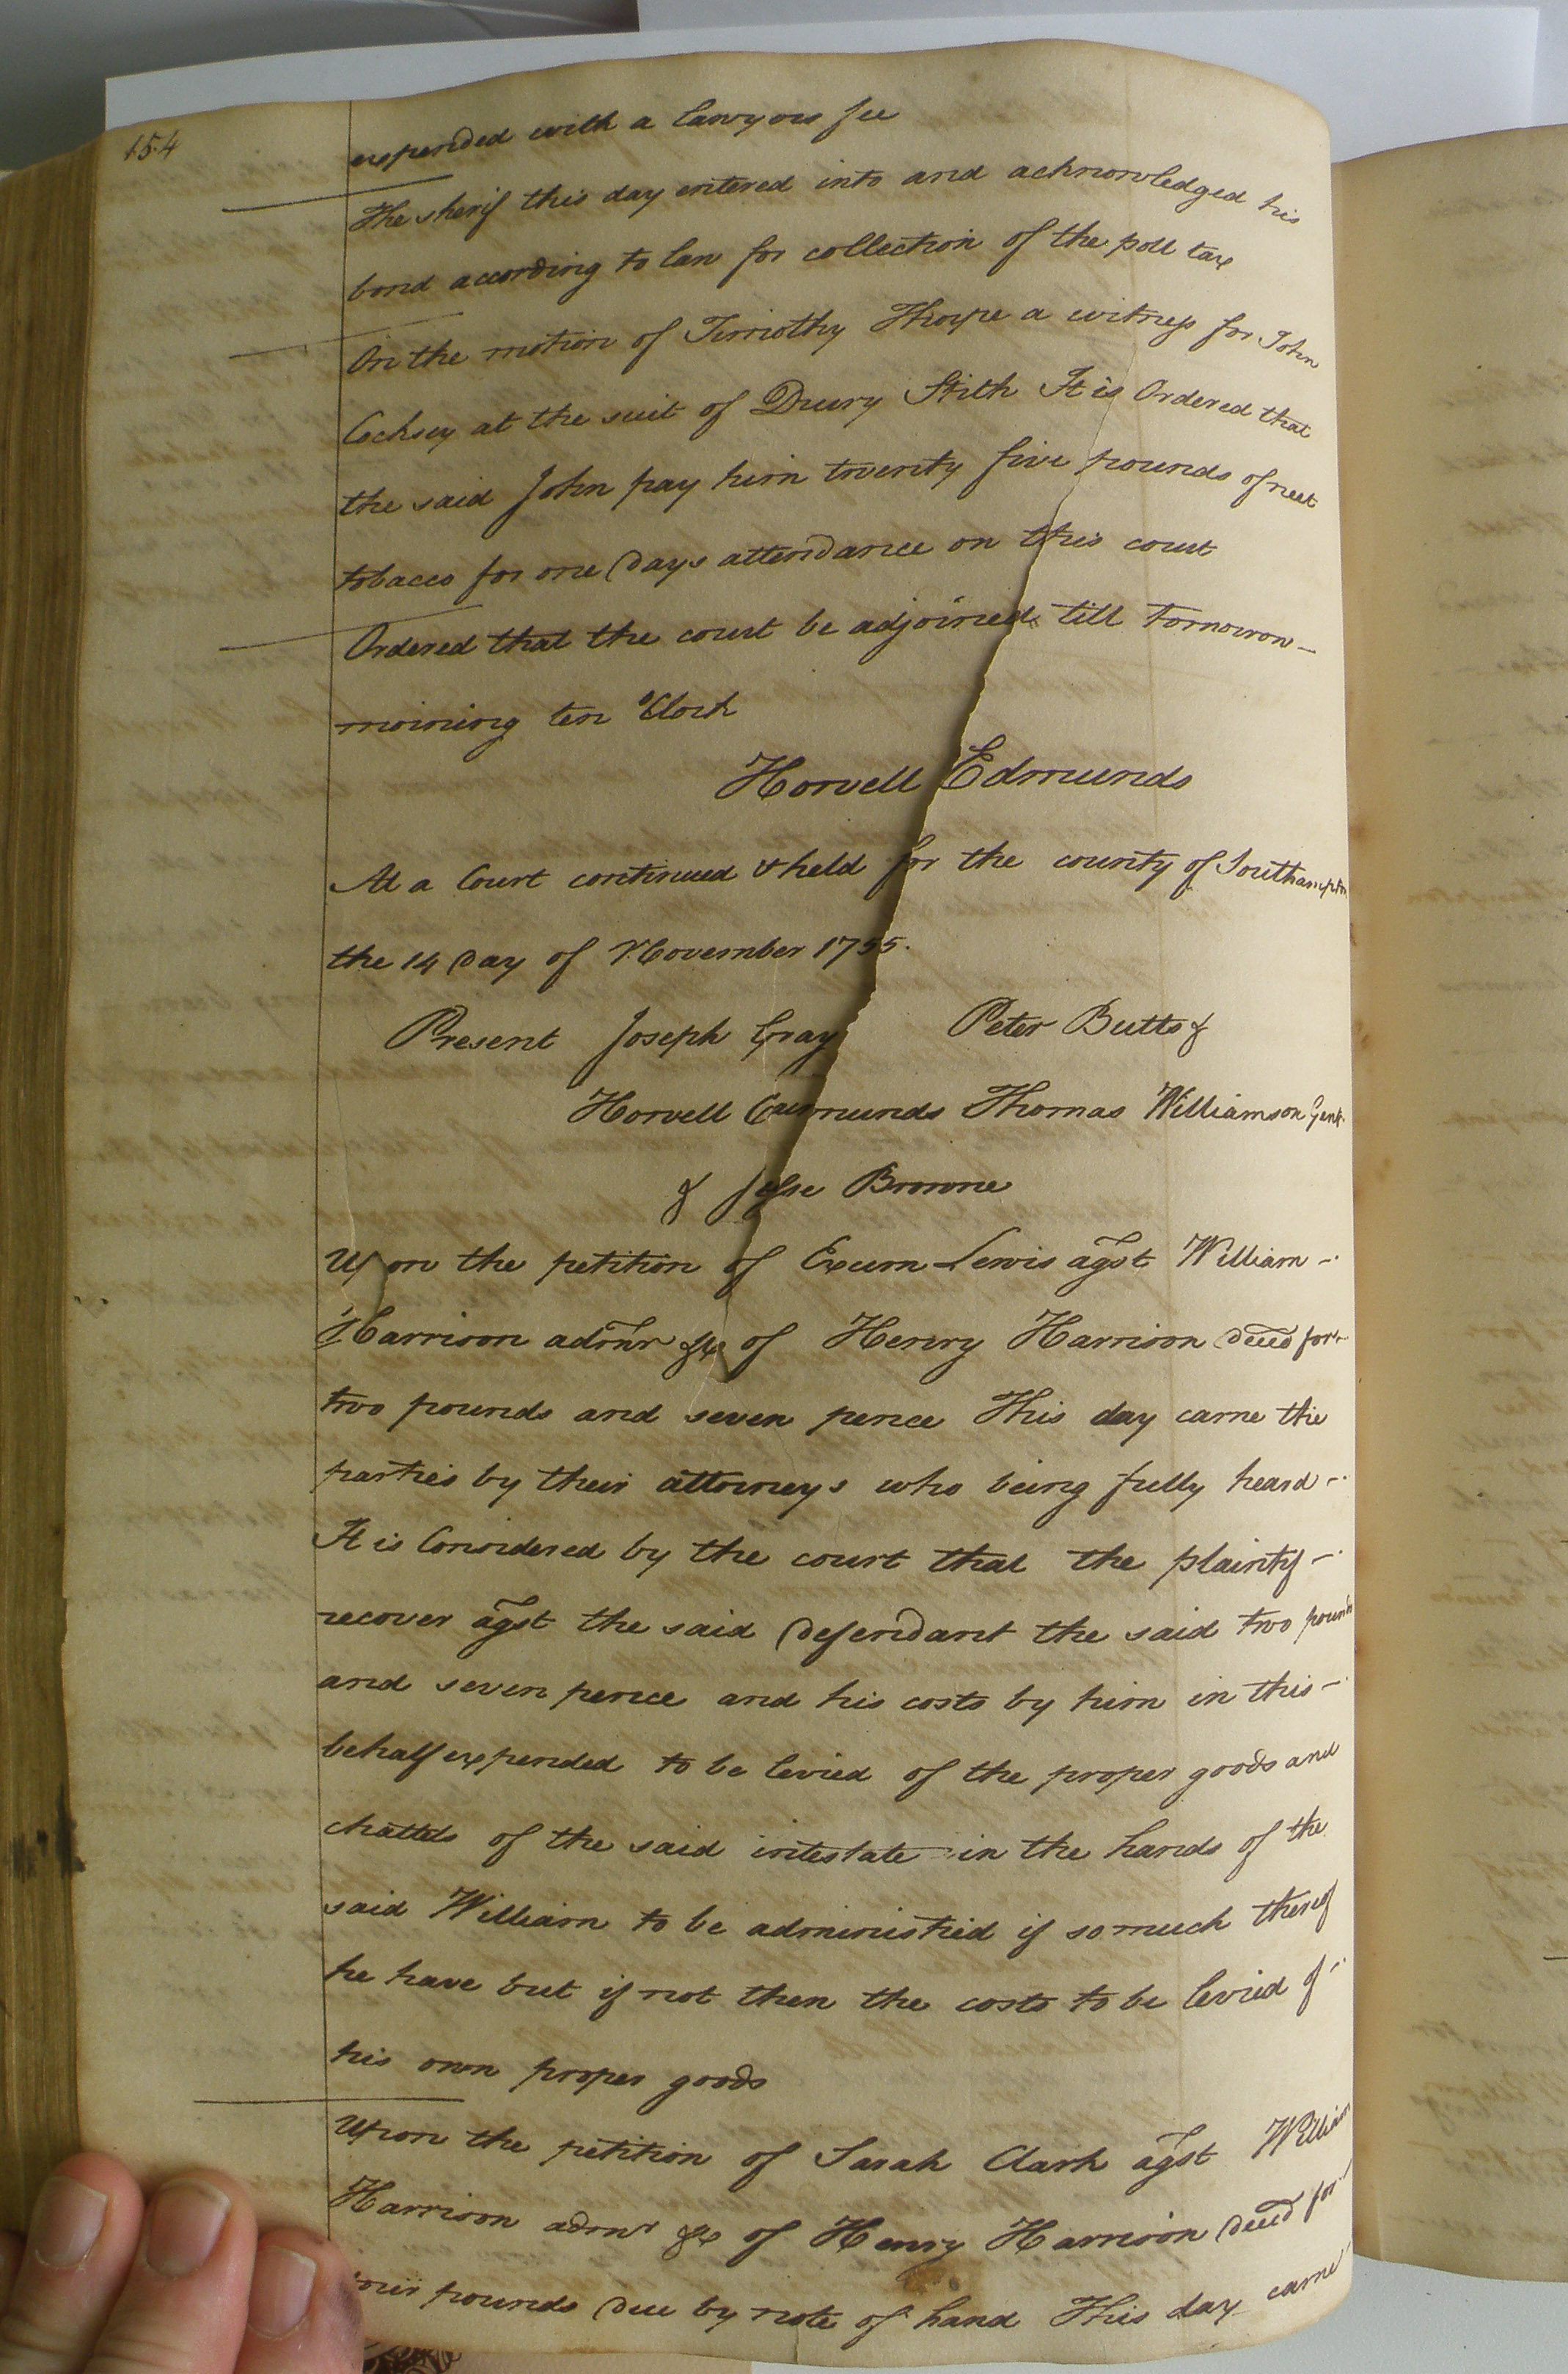 154
expended with a lawyers fee
The sherif this day entered into and acknowledged his
bond according to law for collection of the poll tax
On the motion of Timothy Thorpe a witness for John
Cocksey at the suit of Drury Stith It is Ordered that
the said John pay him twenty five pounds of neet
tobacco for one days attendance on this court
Ordered that the court be adjoined till tomorrow
morning ten oClock
Howell Edmunds
At a Court continued & held for the county of Southampton
the 14 day of November 1755.
Present Joseph Gray Peter Butts &
Howell Edmunds Thomas Williamson Gent.
& Jesse Browne
Upon the petition of Exum Lewis agst William
Harrison admr &c of Henry Harrison decd for
two pounds and seven pence This day came the
parties by their attorneys who being fully heard
It is Considered by the court that the plaintif
recover agst the said defendant the said two pounds
and seven pence and his costs by him in this
behalf expended to be levied of the proper goods and
chattels of the said intestate in the hands of the
said William to be administred if so much thereof
he have but if not then the costs to be levied of
his own proper goods
Upon the petition of Sarah Clark agst William
Harrison admr &c of Henry Harrison decd for
four pounds due by note of hand This day came